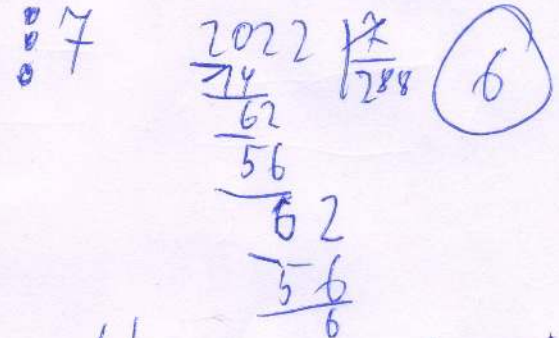 ⋮ 7 2022 | 7 6
- 14 288
62
- 56
62
- 56
6